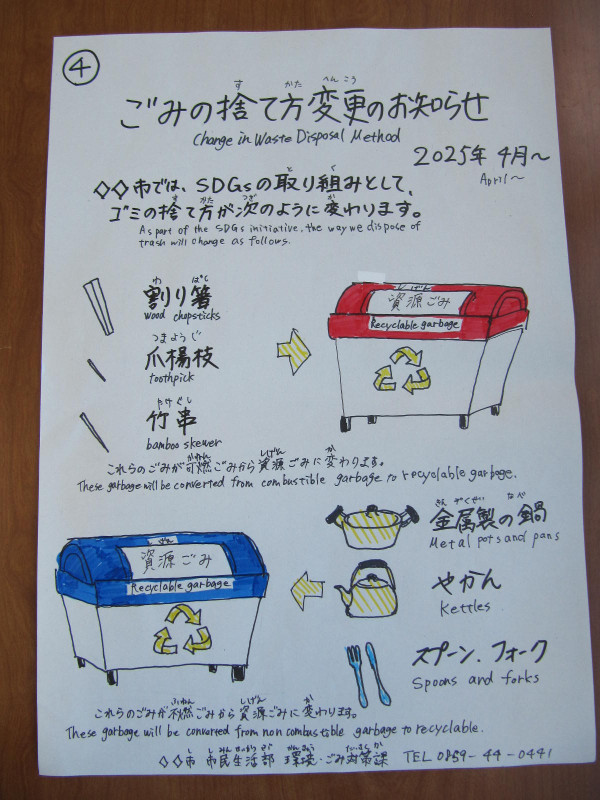 ④
ごみの捨て方変更のお知らせ
す かた へんこう
Change in Waste Disposal Method
2025年 4月〜
April〜
◇◇市では、SDGsの取り組みとして、
と く
ゴミの捨て方が次のように変わります。
す かた つぎ か
As part of the SDGs initiative, the way we dispose of
trash will change as follows.
わ ばし
割り箸
wood chopsticks
つまようじ
爪楊枝
toothpick
たけぐし
竹串
bamboo skewer
しげん
資源ごみ
Recyclable garbage
これらのごみが可燃ごみから資源ごみに変わります。
かねん しげん か
These garbage will be converted from combustible garbage to recyclable garbage.
資源ごみ
Recyclable garbage
きん ぞくせい なべ
金属製の鍋
Metal pots and pans
やかん
Kettles
スプーン、フォーク
Spoons and forks
これらのごみが不燃ごみから資源ごみに変わります。
ふねん しげん か
These garbage will be converted from non combustible garbage to recyclable.
◇◇市 市民生活部 環境・ごみ対策課 TEL 0859-44-0441